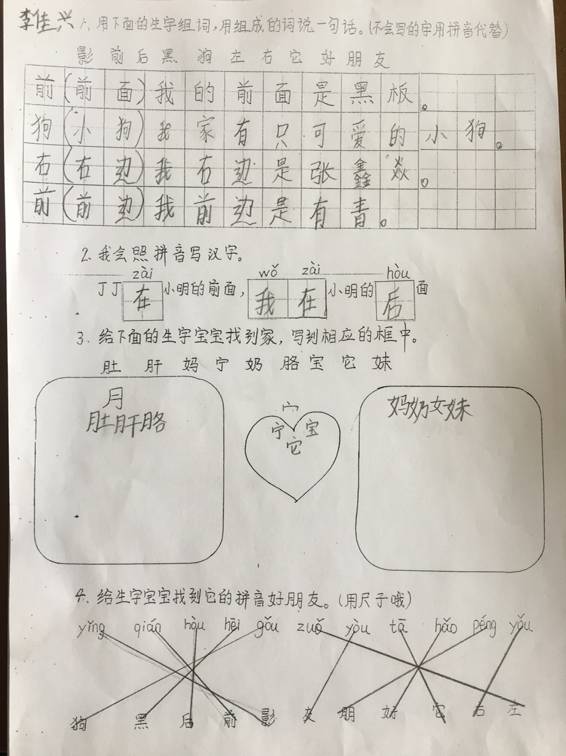 李佳兴 1、用下面的生字组词,用组成的词说一句话。(不会写的字用拼音代替)
影 前 后 黑 狗 左 右 它 好 朋 友
前(前面)我的前面是黑板。
狗(小狗)我家有只可爱的小狗。
右(右边)我右边是张鑫焱。
前(前边)我前边是有青。
2. 我会照拼音写汉字。
zài wǒ zài hòu
丁丁在小明的前面,我在小明的后面
3、给下面的生字宝宝找到家,写到相应的框中。
肚 肝 妈 宁 奶 胳 宝 它 妹
月 宀 妈奶女妹
肚肝胳 宁 宝
它
4、给生字宝宝找到它的拼音好朋友。(用尺子哦)
yǐng qián hòu hēi gǒu zuǒ yòu tā hǎo péng yǒu
狗 黑 后 前 影 友 朋 好 它 右 左